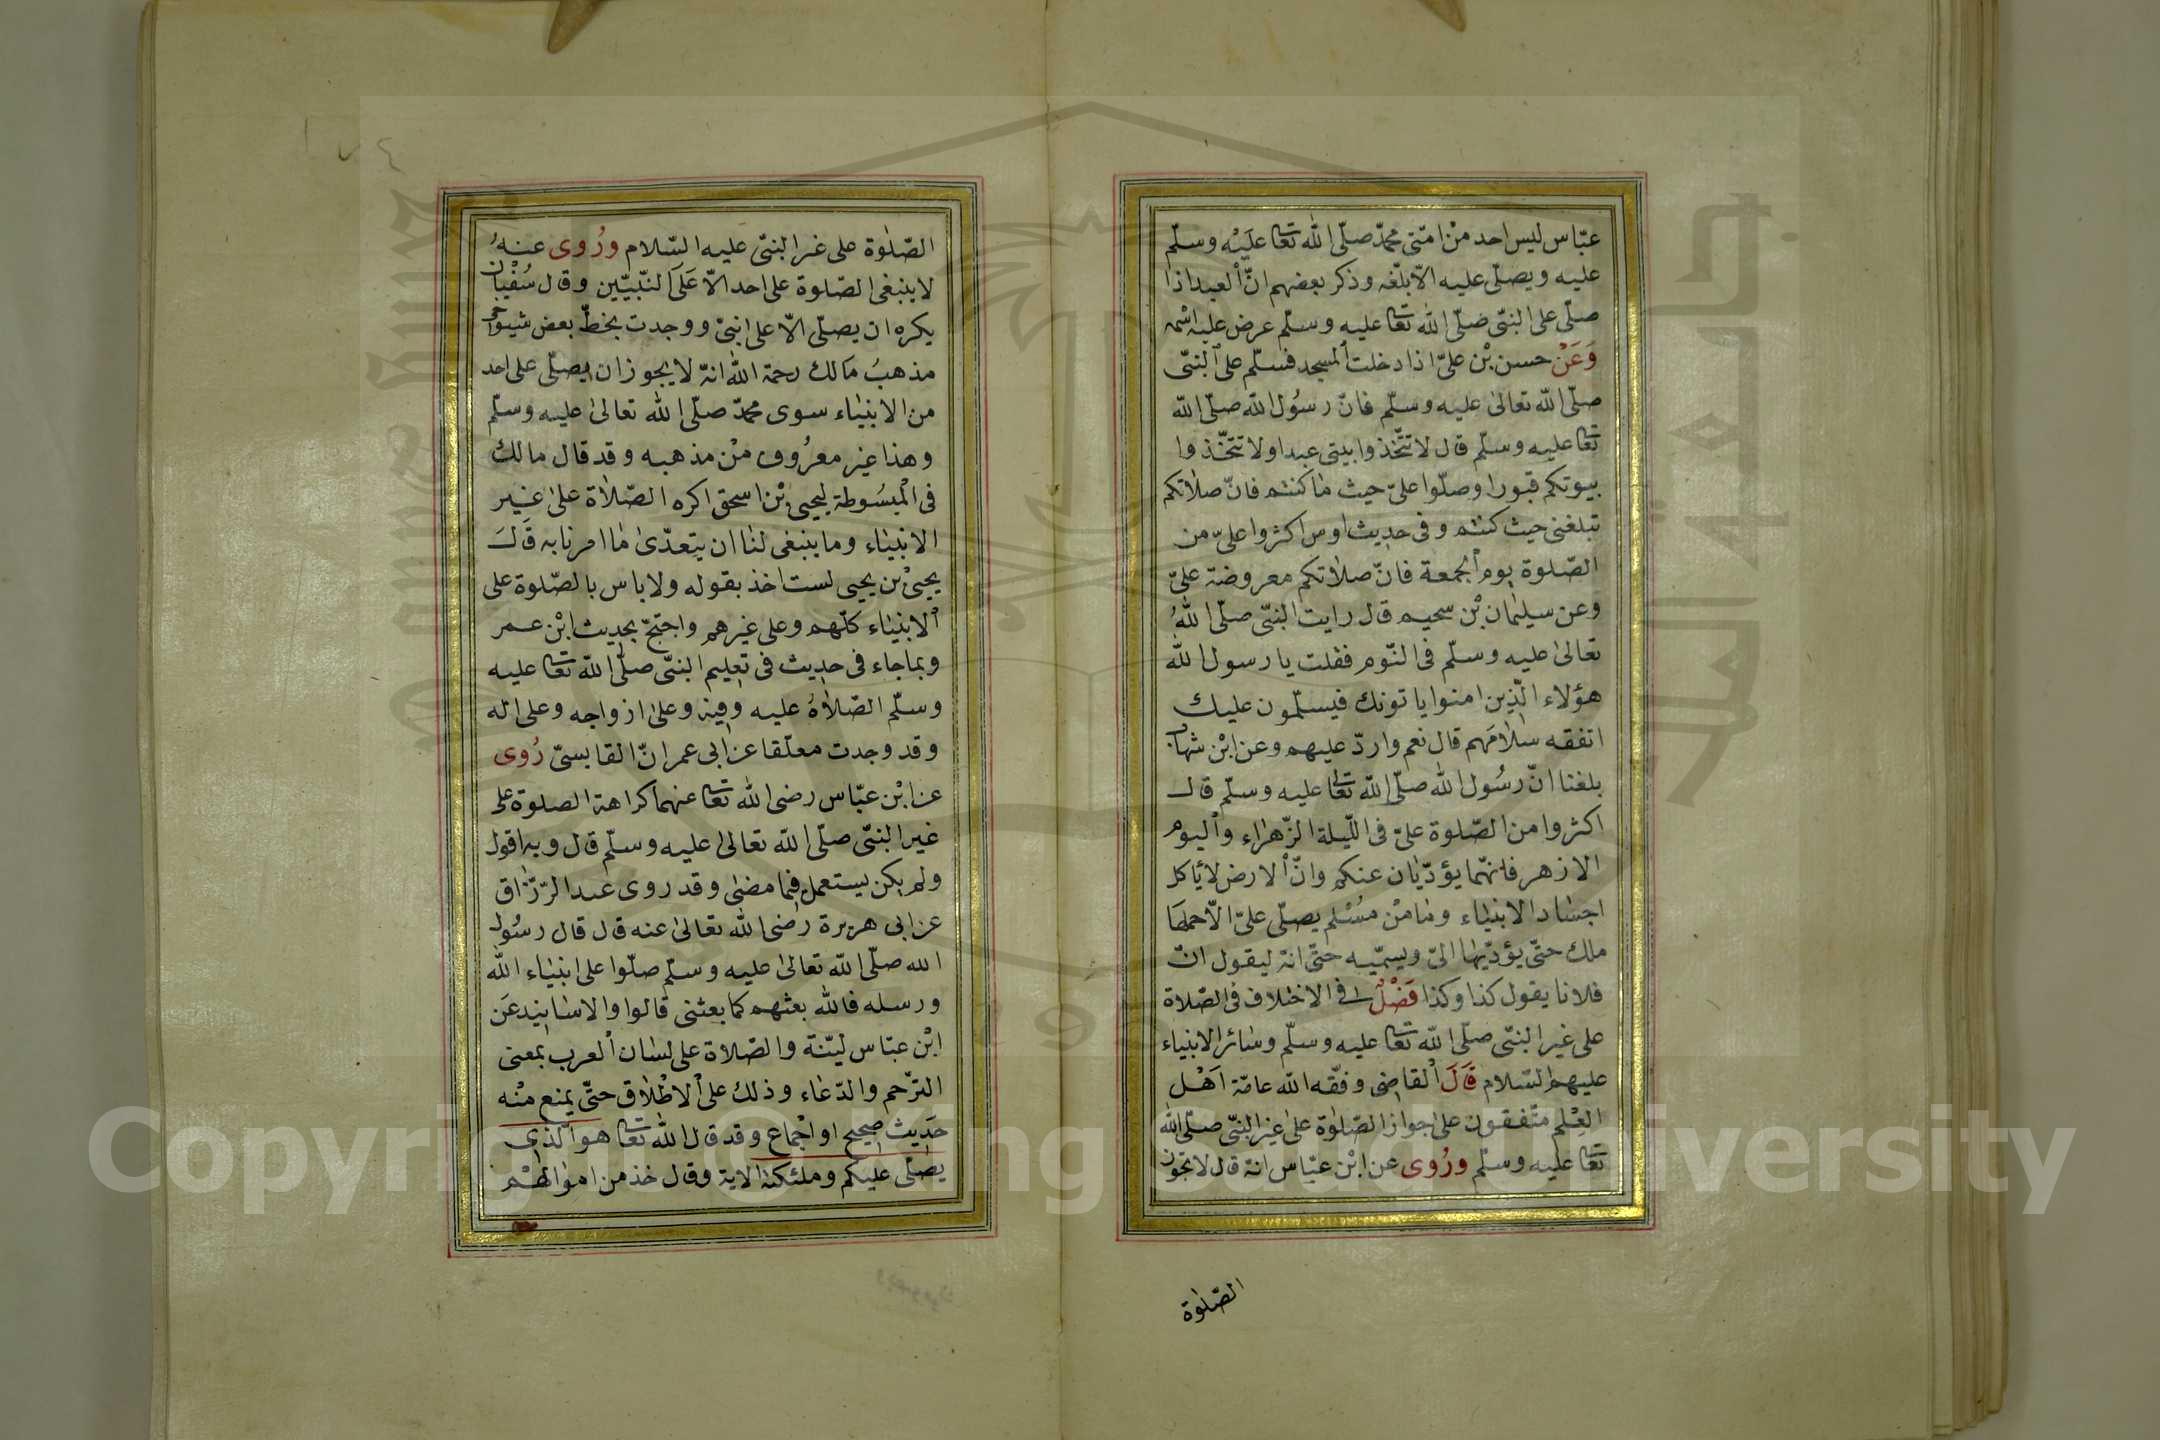 عبّاس ليس احد من امّتى محمّد صلّى الله تعا عليه وسلّم
عليه ويصلّى عليه الّا بلّغه وذكر بعضهم انّ العبد اذا
صلّى على النبّى صلّى الله تعا عليه وسلّم عرض عليه اسمه
وَعَنْ حسن بْن علىّ اذا دخلت المسجد فسلّم على النبّى
صلّى الله تعالى عليه وسلّم فانّ رسُول الله صلّى الله
تعا عليه وسلّم قال لا تتّخذوا بيتى عيدا ولا تتخّذوا
بيوتكم قبورا وصلّوا علىّ حيث ما كنتم فانّ صلاتكم
تبلغنى حيث كنتم وفى حديث اوس اكثروا علىّ من
الصّلوة يوم الجمعة فانّ صلاتكم معروضة علىّ
وعن سليمان بْن سحيم قال رايت النبّى صلّى اللهُ
تعالى عليه وسلّم فى النّوم فقلت يا رسول الله
هؤلاء الّذين امنوا ياتونك فيسلّمون عليك
اتفقه سلامَهم قال نعم واردّ عليهم وعن ابْن شهاب
بلغنا انّ رسُول الله صلّى الله تعا عليه وسلّم قال
اكثروا من الصّلوة علىّ فى اللّيلة الزّهراء واليوم
الازهر فانهّما يؤدّيان عنكم وانّ الارض لا يأكل
اجساد الانبياء وما منْ مسْلم يصلّى علىّ الّا حملها
ملك حتّى يؤدّيها الىّ ويسمّيه حتّى انه ليقول انّ
فلانا يقول كذا وكذا فَصْلٌ فى الاختلاف فى الصّلاة
على غير النبّى صلّى الله تعا عليه وسلّم وسائر الانبياء
عليهم السّلام قَالَ القاضى وفّقه الله عامّة اَهْل
العِلْم متّفقون على جواز الصّلوٰة على غير النبّى صلّى الله
تعا عليه وسلّم ورُوى عن ابْن عبّاس انه قال لا تجوز
الصّلوٰة
الصّلوٰة على غير النبّى عليه السّلام ورُوى عنهُ
لا ينبغى الصّلوة على احد الّا عَلَى النّبيّين وقال سُفْيان
يكره ان يصلّى الّا على نبىّ ووجدت بخطّ بعض شيوخى
مذهبُ مالك رحمة الله انه لا يجوز ان يصلّى على احد
من الانبياء سوى محمّد صلّى الله تعالى عليه وسلّم
وهذا غير معرُوف منْ مذهبه وقد قال مالك
فى المْبسُوطة ليحيى بْن اسحق اكره الصّلاة على غير
الانبياء وما ينبغى لنا ان يتعدّى ما امرنا به قَالَ
يحيىْ بْن يحيى لست اخذ بقوله ولا باس بالصّلوة على
الانبياء كلّهم وعلى غيرهم واحتجّ بحديث ابْن عمر
وبما جاء فى حديث فى تعليم النبّى صلّى الله تعا عليه
وسلّم الصّلاةُ عليه وفيه وعلى ازواجه وعلى اله
وقد وجدت معلّقا عن ابى عمران القابسىّ رُوى
عن ابْن عبّاس رضى الله تعا عنهما كراهة الصلوة على
غير النبّى صلّى الله تعالى عليه وسلّم قال وبه اقول
ولم يكن يستعمل فيما مضى وقد روى عبد الرّزّاق
عن ابى هريرة رضى الله تعالى عنه قال قال رسُول
الله صلّى الله تعالى عليه وسلّم صلّوا على انبياء الله
ورسله فالله بعثهم كما بعثنى قالوا والاسانيد عَن
ابْن عبّاس ليّنة والصّلاة على لسان العرب بمعنى
الترّحم والدّعاء وذلك على الاطْلاق حتّى يمنع منْه
حَديث صحيح او اجْماع وقد قال الله تعا هو الّذى
يصلّى عليكم وملئكته الاية وقال خذ من اموالهْم
Copyright © King Saud University